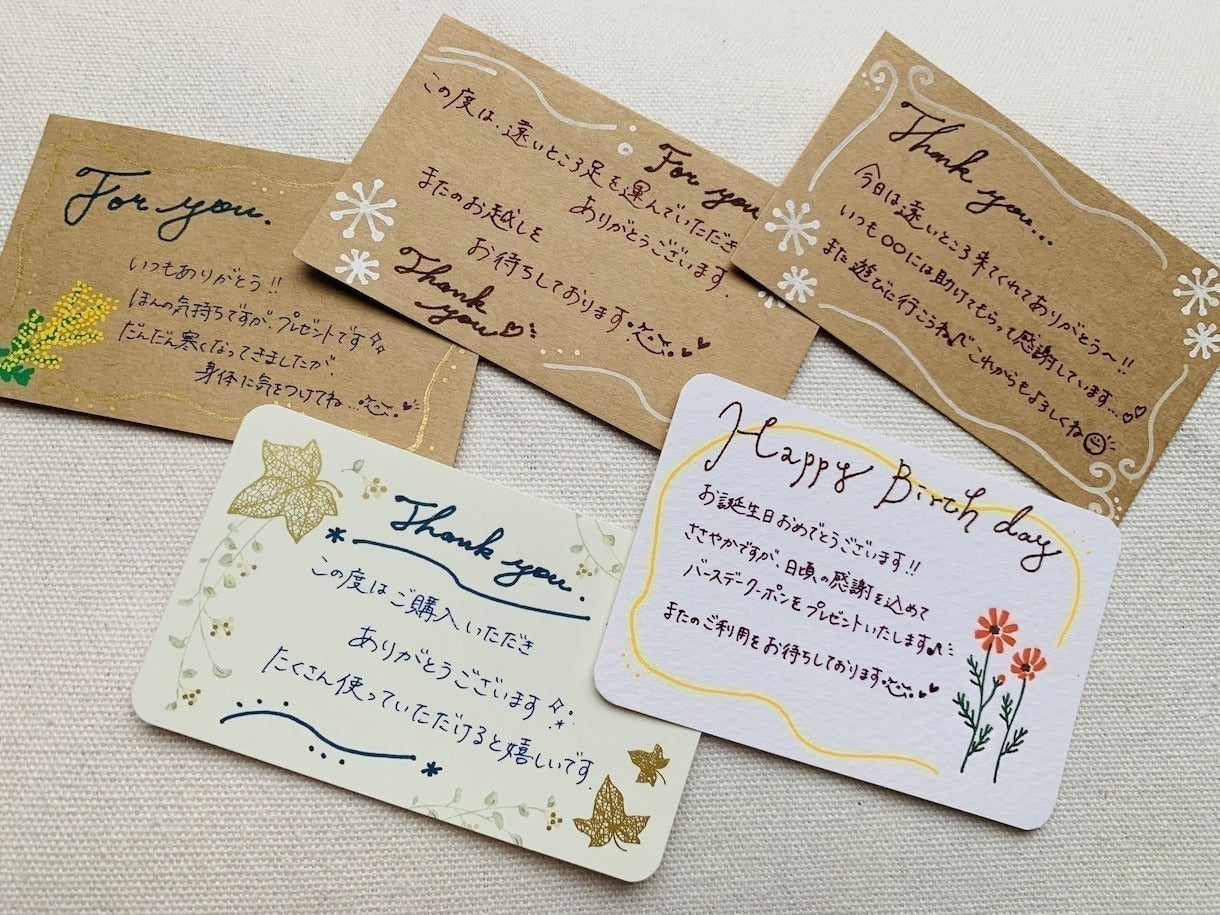 For you.
いつもありがとう!!
ほんの気持ちですが、プレゼントです
だんだん寒くなってきましたが、
身体に気をつけてね...
この度は、遠いところ足を運んでいただき
ありがとうございます.
For you
またのお越しを
お待ちしております
Thank
you
Thank you...
今日は遠いところ来てくれてありがとう〜!!
いつも〇〇には助けてもらって感謝しています...
また遊びに行こうね♪これからもよろしくね
Thank you.
この度はご購入いただき
ありがとうございます
たくさん使っていただけると嬉しいです.
Happy Birth day
お誕生日おめでとうございます!!
ささやかですが、日頃の感謝を込めて
バースデークーポンをプレゼントいたします♪
またのご利用をお待ちしております